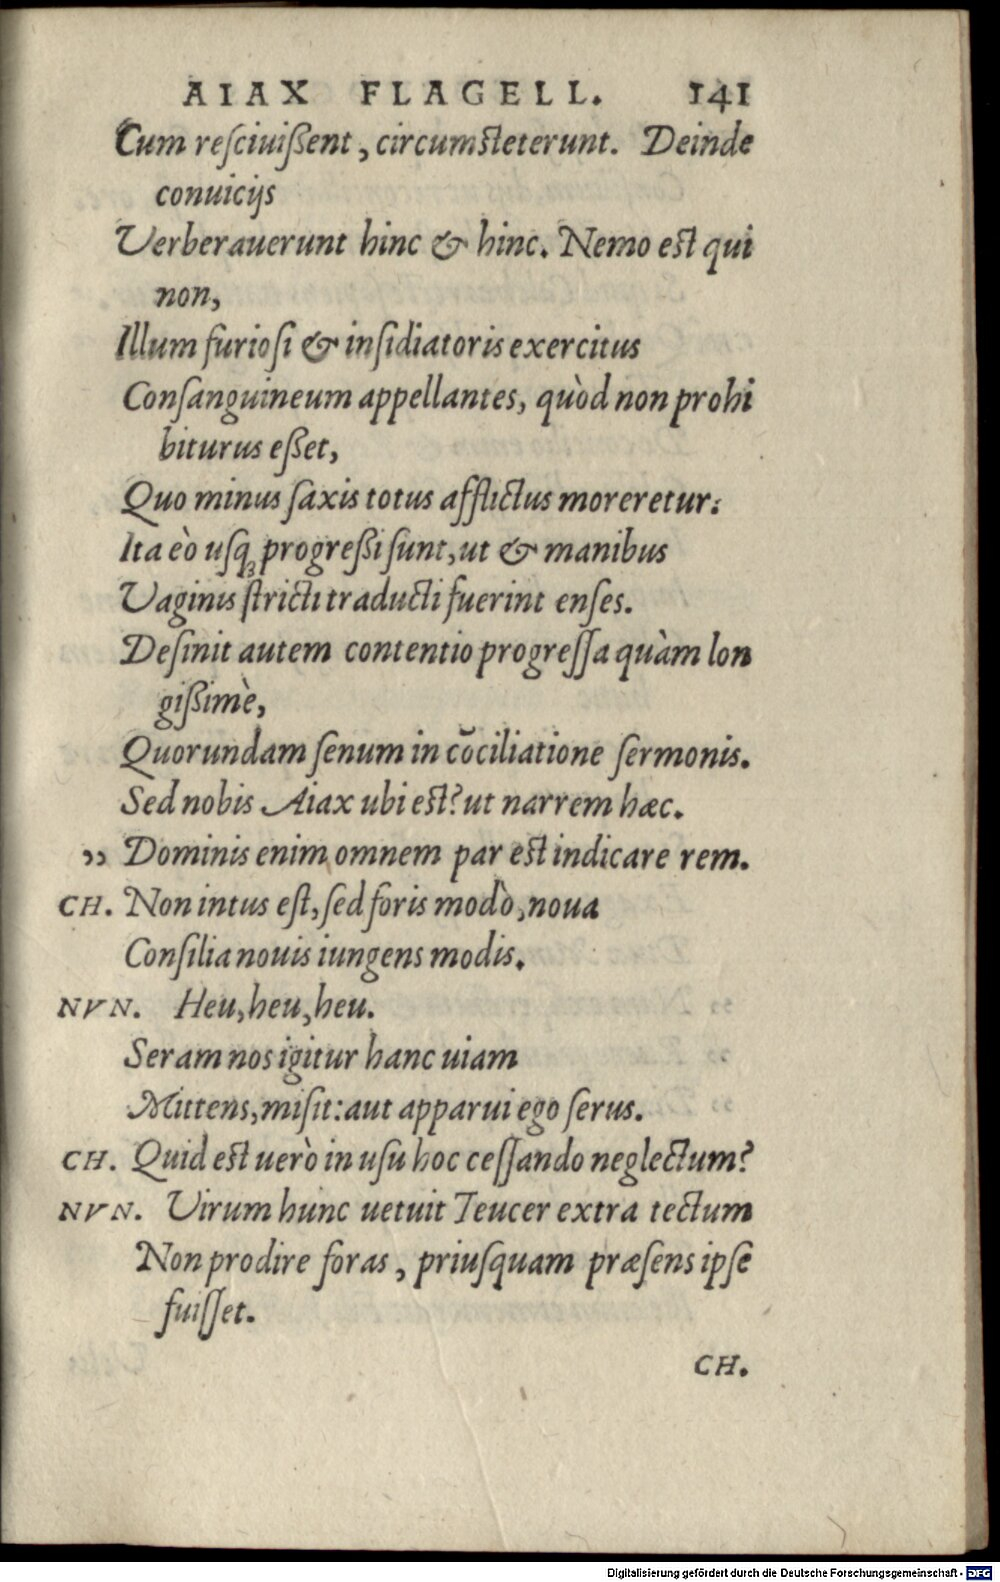 AIAX FLAGELL. 141
Cum resciuißent, circumsteterunt. Deinde
conuicijs
Verberauerunt hinc & hinc. Nemo est qui
non,
Illum furiosi & insidiatoris exercitus
Consanguineum appellantes, quòd non prohi
biturus eßet,
Quo minus saxis totus afflictus moreretur:
Ita eò usq́; progreßi sunt, ut & manibus
Vaginis stricti traducti fuerint enses.
Desinit autem contentio progressa quàm lon
gißimè,
Quorundam senum in cōciliatione sermonis.
Sed nobis Aiax ubi est? ut narrem hæc.
„ Dominis enim omnem par est indicare rem.
CH. Non intus est, sed foris modò, noua
Consilia nouis iungens modis.
NVN. Heu, heu, heu.
Seram nos igitur hanc uiam
Mittens, misit: aut apparui ego serus.
CH. Quid est uerò in usu hoc cessando neglectum?
NVN. Virum hunc uetuit Teucer extra tectum
Non prodire foras, priusquam præsens ipse
fuisset.
CH.
Digitalisierung gefördert durch die Deutsche Forschungsgemeinschaft - DFG